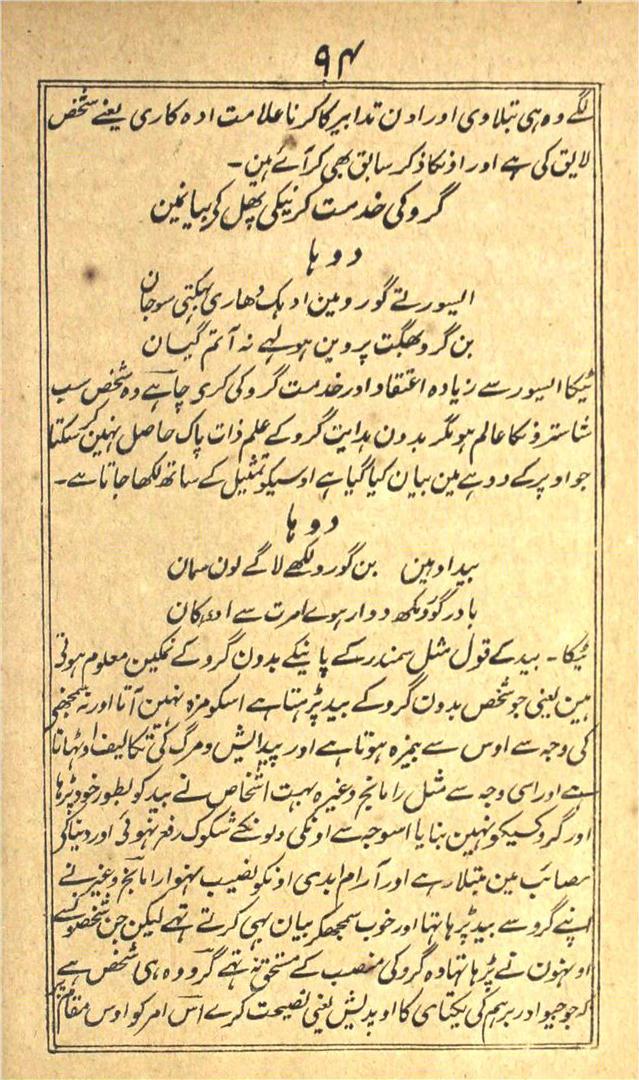 ۹۴
لگے وہ ہی تبلاوی اور اون تدابیر کا کرنا علامت ادہ کاری یعنے شخص
لایق کی ہے اور اونکا ذکر سابق بھی کر آئے ہین۔
گرو کی خدمت کرنیکی پھل کی بیانمین
دوہا
ایسور تے گورو مین ادہک دھاری بھکتی سوجان
بن گرو بھگت پروین ہو لہے نہ آتم گیان
ٹیکا ایسور سے زیادہ اعتقاد اور خدمت گرو کی کری چاہے وہ شخص سب
شاسترونکا عالم ہو مگر بدون ہدایت گرو کے علم ذات پاک حاصل نہین کر سکتا
جو اوپر کے دوہے مین بیان کیا گیا ہے اوسیکو تمثیل کے ساتھ لکھا جاتا ہے۔
دوہا
بید اوہین بن گورو لکھے لاگے لون سمان
بادر گورمکھ دوار ہوے امرت سے ادہکان
ٹیکا۔ بید کے قول مثل سمندر کے پانیکے بدون گرو کے نمکین معلوم ہوتی
ہین یعنی جو شخص بدون گرو کے بید پڑہتا ہے اسکو مزہ نہین آتا اور نہ سمجھنی
کی وجہ سے اوس سے بیمزہ ہوتا ہے اور پیدایش و مرگ کی تکالیف اوٹہاتا
ہے اور اسی وجہ سے مثل رامانج وغیرہ بہت اشخاص نے بید کو بطور خود پڑہا
اور گرو کسیکو نہین بنایا اسوجہ سے اونکی دلونکے شکوک رفع نہوئی اور دنیا کی
مصائب مین مبتلا رہے اور آرام ابدی اونکو نصیب نہوا رامانج وغیرہ نے
اپنے گرو سے بید پڑہا تہا اور خوب سمجھکر بیان بہی کرتے تہے لیکن جن شخصونسے
اونہون نے پڑہا تہا وہ گرو کی منصب کے مستحق نہ تہے گرو وہ ہی شخص ہے
کہ جو جیو اور برہم کی یکتای کا اوپدیش یعنی نصیحت کرے اس امر کو اوس مقام پر